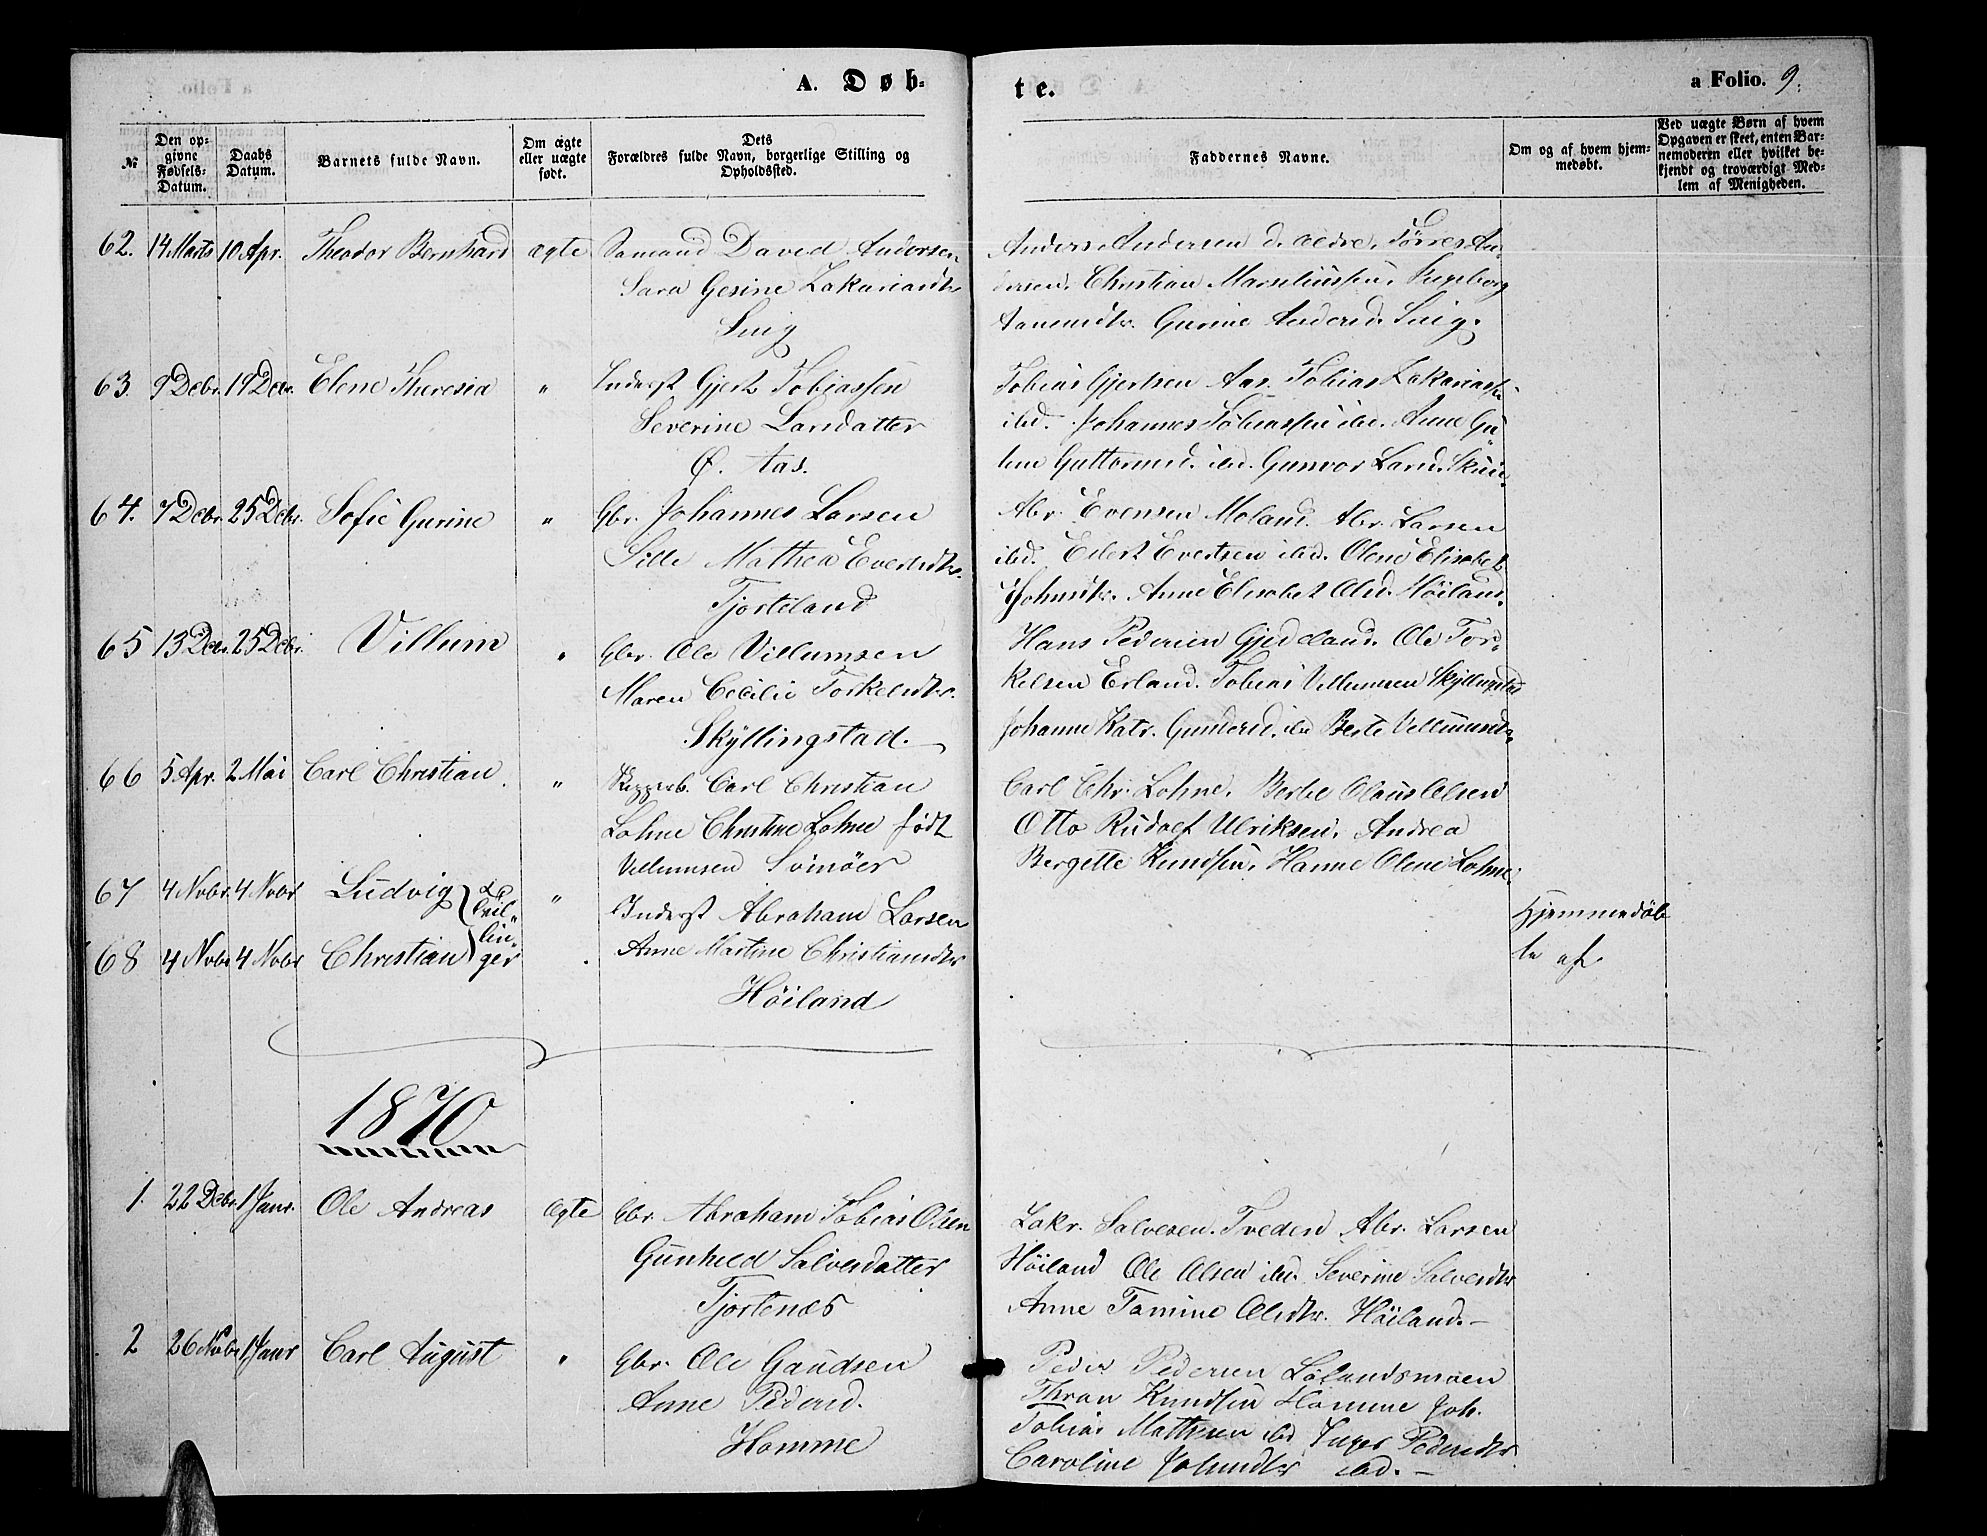 A. Døb-
te.
a Folio. 9.
№
Den op-
givne
Fødsels-
Datum.
Daabs
Datum.
Barnets fulde Navn.
Om ægte
eller uægte
født.
Dets
Forældres fulde Navn, borgerlige Stilling og
Opholdssted.
Faddernes Navne.
Om og af hvem hjem-
medøbt.
Ved uægte Børn af hvem
Opgaven er skeet, enten Bar-
nemoderen eller hvilket be-
kjendt og troværdigt Med-
lem af Menigheden.
62. 14 Marts 10 Apr. Theodor Bernhard ægte Samand David Andersen
Sara Gesine Zakariasdtr
Snig
Anders Andersen d. ældre, Tørres An-
dersen, Christian Marseliussen, Ingeborg
Aanensdtr. Gurine Andersd. Snig.
63. 9 Debr. 19 Debr. Elene Theresia " Inderst Gjert Tobiassen
Severine Larsdatter
Ø. Aas.
Tobias Gjertsen Aas. Tobias Zakariass.
ibd. Johannes Tobiassen ibd. Anne Gu-
Guttormsd. ibd. Gunvor Larsd.
64. 7 Debr. 25 Debr. Sofie Gurine " Gbr. Johannes Larsen
Sille Mathea Evertsdtr.
Tjorteland
Abr. Evensen Moland. Abr. Larsen
ibd. Eilert Evertsen ibd. Olene Elisabet
Johnsdtr. Anne Elisabet Olsd. Høiland.
65 13 Debr. 25 Debr. Villum " Gbr. Ole Villumsen
Maren Cecilie Torkelsdtr.
Skyllingstad.
Hans Pedersen Gjedeland. Ole Tor-
kelsen Erland. Tobias Villumsen Skyllingstad
Johanne Katr. Gundersd. ibd Berte Villumsdtr.
66 5 Apr. 2 Mai Carl Christian " Skipperb. Carl Christian
Lohne Christine Lohne født
Villumsen Svinøer
Carl Chr. Lohne. Berte Olaus Olsen
Otto Rudolf Ulriksen. Andrea
Bergette Knudsen. Hanne Olene Lohne.
67 4 Nobr. 4 Nobr Ludvig } Tvil- " Inderst Abraham Larsen
68 4 Nobr 4 Nobr Christian } lin-ger " Anne Martine Christiansdtr
Høiland
Hjemmedøb
te af
1870
1. 22 Debr. 1 Janr. Ole Andreas Ægte Gbr. Abraham Tobias Olsen
Gunhild Salvesdatter
Tjortenæs
Zakr. Salvesen. Tveden Abr. Larsen
Høiland Ole Olsen ibd. Severine Salvesdtr
Anne Tomine Olsdtr. Høiland.
2 26 Nobr 1 Janr Carl August " Gbr. Ole Gaudsen
Anne Pedersd.
Homme
Peder Pedersen Lølandsmoen
Thron Knudsen Homme Joh.
Tobias Mathsen ibd Inger Pedersdtr
Caroline Johnsdtr ibd.